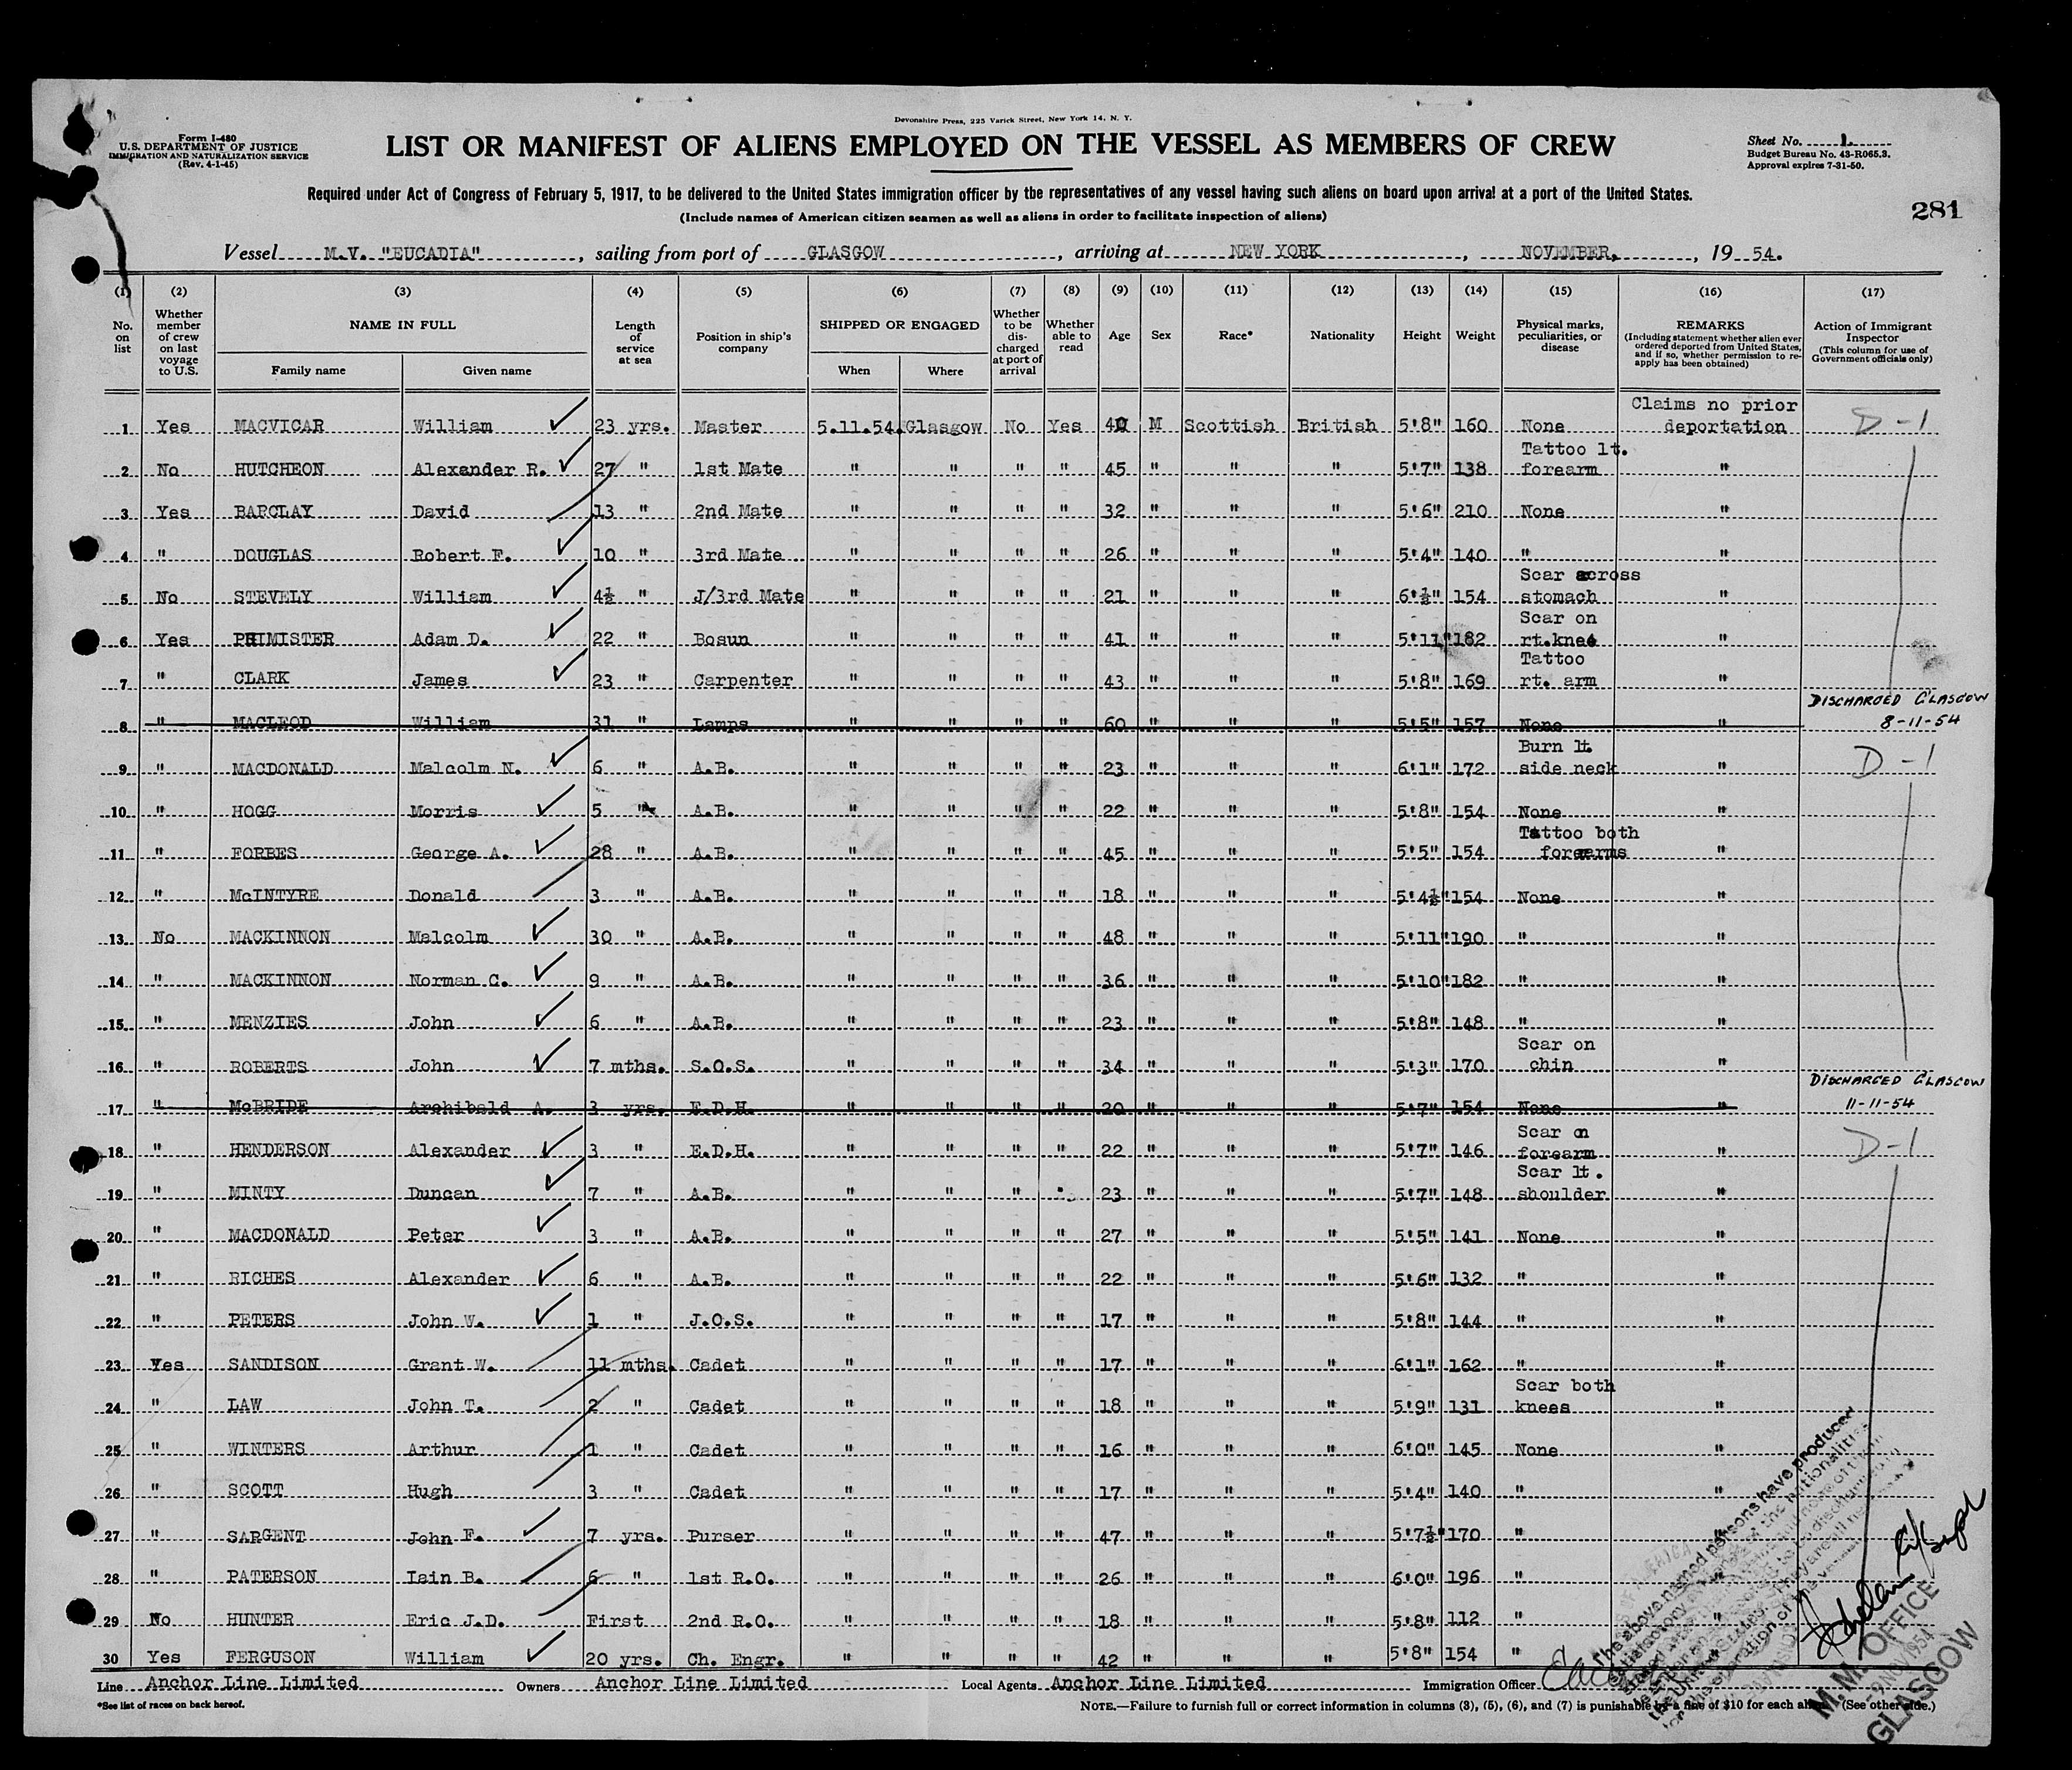 Devonshire Press, 225 Varick Street, New York 14, N. Y.
Form I-480
U.S. DEPARTMENT OF JUSTICE
IMMIGRATION AND NATURALIZATION SERVICE
(Rev. 4-1-45)
LIST OR MANIFEST OF ALIENS EMPLOYED ON THE VESSEL AS MEMBERS OF CREW
Sheet No. 1.
Budget Bureau No. 43-R065.3.
Approval expires 7-31-50.
Required under Act of Congress of February 5, 1917, to be delivered to the United States immigration officer by the representatives of any vessel having such aliens on board upon arrival at a port of the United States.
(Include names of American citizen seamen as well as aliens in order to facilitate inspection of aliens)
281
Vessel M.V. "EUCADIA", sailing from port of GLASGOW, arriving at NEW YORK, NOVEMBER, 19 54.
(1) (2) (3) (4) (5) (6) (7) (8) (9) (10) (11) (12) (13) (14) (15) (16) (17)
No. on list
Whether member of crew on last voyage to U.S.
NAME IN FULL
Family name Given name
Length of service at sea
Position in ship's company
SHIPPED OR ENGAGED
When Where
Whether to be discharged at port of arrival
Whether able to read
Age Sex Race* Nationality Height Weight
Physical marks, peculiarities, or disease
REMARKS
(Including statement whether alien ever ordered deported from United States, and if so, whether permission to reapply has been obtained)
Action of Immigrant Inspector
(This column for use of Government officials only)
1 Yes MACVICAR William 23 yrs. Master 5.11.54. Glasgow No Yes 40 M Scottish British 5'8" 160 None Claims no prior deportation D-1
2 No HUTCHEON Alexander R. 27 " 1st Mate " " " " 45 " " " 5'7" 138 Tattoo lt. forearm "
3 Yes BARCLAY David 13 " 2nd Mate " " " " 32 " " " 5'6" 210 None "
4 " DOUGLAS Robert F. 10 " 3rd Mate " " " " 26 " " " 5'4" 140 " "
5 No STEVELY William 4½ " J/3rd Mate " " " " 21 " " " 6'½" 154 Scar across stomach "
6 Yes PRIMISTER Adam D. 22 " Bosun " " " " 41 " " " 5'11" 182 Scar on rt.knee "
7 " CLARK James 23 " Carpenter " " " " 43 " " " 5'8" 169 Tattoo rt. arm "
8 " MACLEOD William 31 " Lamps " " " " 60 " " " 5'5" 157 None " DISCHARGED GLASGOW 8-11-54
9 " MACDONALD Malcolm N. 6 " A.B. " " " " 23 " " " 6'1" 172 Burn lt. side neck " D-1
10 " HOGG Morris 5 " A.B. " " " " 22 " " " 5'8" 154 None "
11 " FORBES George A. 28 " A.B. " " " " 45 " " " 5'5" 154 Tattoo both forearms "
12 " McINTYRE Donald 3 " A.B. " " " " 18 " " " 5'4½" 154 None "
13 No MACKINNON Malcolm 30 " A.B. " " " " 48 " " " 5'11" 190 " "
14 " MACKINNON Norman C. 9 " A.B. " " " " 36 " " " 5'10" 182 " "
15 " MENZIES John 6 " A.B. " " " " 23 " " " 5'8" 148 " "
16 " ROBERTS John 7 mths. S.O.S. " " " " 34 " " " 5'3" 170 Scar on chin "
17 " McBRIDE Archibald A. 3 yrs. E.D.H. " " " " 20 " " " 5'7" 154 None " DISCHARGED GLASGOW 11-11-54
18 " HENDERSON Alexander 3 " E.D.H. " " " " 22 " " " 5'7" 146 Scar on forearm " D-1
19 " MINTY Duncan 7 " A.B. " " " " 23 " " " 5'7" 148 Scar lt. shoulder "
20 " MACDONALD Peter 3 " A.B. " " " " 27 " " " 5'5" 141 None "
21 " RICHES Alexander 6 " A.B. " " " " 22 " " " 5'6" 132 " "
22 " PETERS John W. 1 " J.O.S. " " " " 17 " " " 5'8" 144 " "
23 Yes SANDISON Grant W. 11 mths. Cadet " " " " 17 " " " 6'1" 162 " "
24 " LAW John T. 2 " Cadet " " " " 18 " " " 5'9" 131 Scar both knees "
25 " WINTERS Arthur 1 " Cadet " " " " 16 " " " 6'0" 145 None "
26 " SCOTT Hugh 3 " Cadet " " " " 17 " " " 5'4" 140 " "
27 " SARGENT John F. 7 yrs. Purser " " " " 47 " " " 5'7½" 170 "
28 " PATERSON Iain B. 6 " 1st R.O. " " " " 26 " " " 6'0" 196 "
29 No HUNTER Eric J.D. First 2nd R.O. " " " " 18 " " " 5'8" 112 " "
30 Yes FERGUSON William 20 yrs. Ch. Engr. " " " " 42 " " " 5'8" 154 "
The above named persons have produced
M.M. OFFICE
9 NOV 1954
GLASGOW
Line Anchor Line Limited Owners Anchor Line Limited Local Agents Anchor Line Limited Immigration Officer
*See list of races on back hereof.
NOTE.—Failure to furnish full or correct information in columns (3), (5), (6), and (7) is punishable by a fine of $10 for each alien. (See other side.)